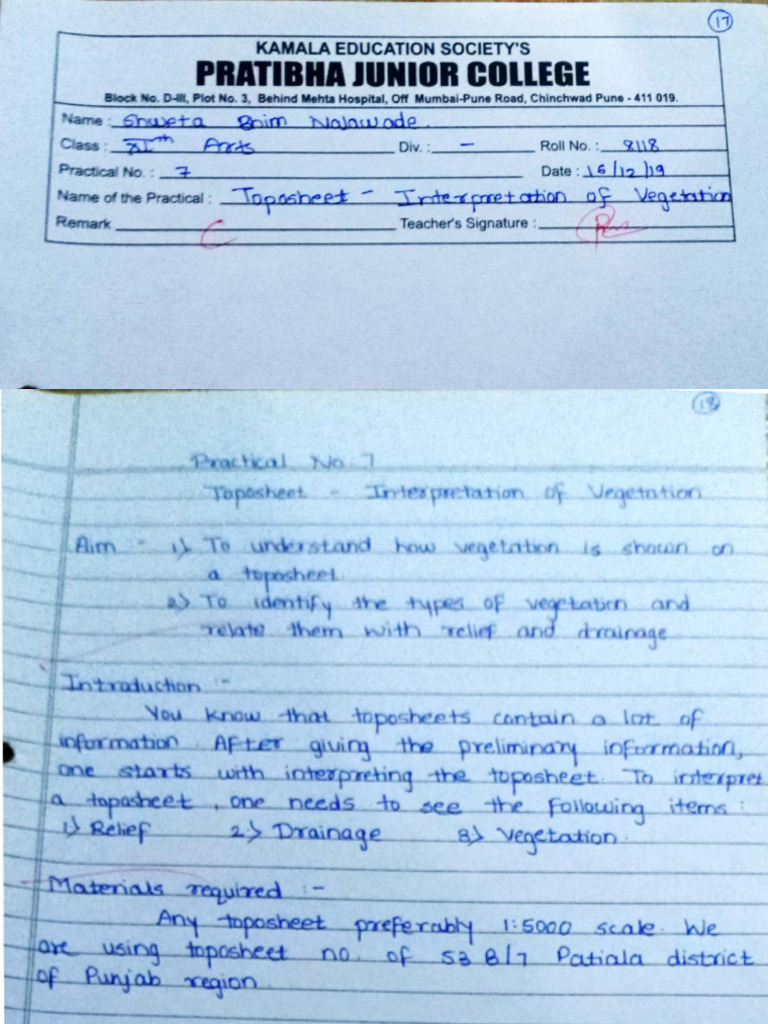 17
KAMALA EDUCATION SOCIETY'S
PRATIBHA JUNIOR COLLEGE
Block No. D-III, Plot No. 3, Behind Mehta Hospital, Off Mumbai-Pune Road, Chinchwad Pune - 411 019.
Name : Shweta Bhim Nalawade.
Class : XIth Arts Div. : - Roll No. : 8118
Practical No. : 7 Date : 16/12/19
Name of the Practical : Toposheet - Interpretation of Vegetation
Remark Teacher's Signature :
18
Practical No. 7
Toposheet - Interpretation of Vegetation
Aim :- 1) To understand how vegetation is shown on
a toposheet.
2) To identify the types of vegetation and
relate them with relief and drainage
Introduction :-
You know that toposheets contain a lot of
information. After giving the preliminary information,
one starts with interpreting the toposheet. To interpret
a toposheet, one needs to see the following items :
1) Relief 2) Drainage 3) Vegetation.
Materials required :-
Any toposheet preferably 1:5000 scale. We
are using toposheet no. of 53 B/7 Patiala district
of Punjab region.